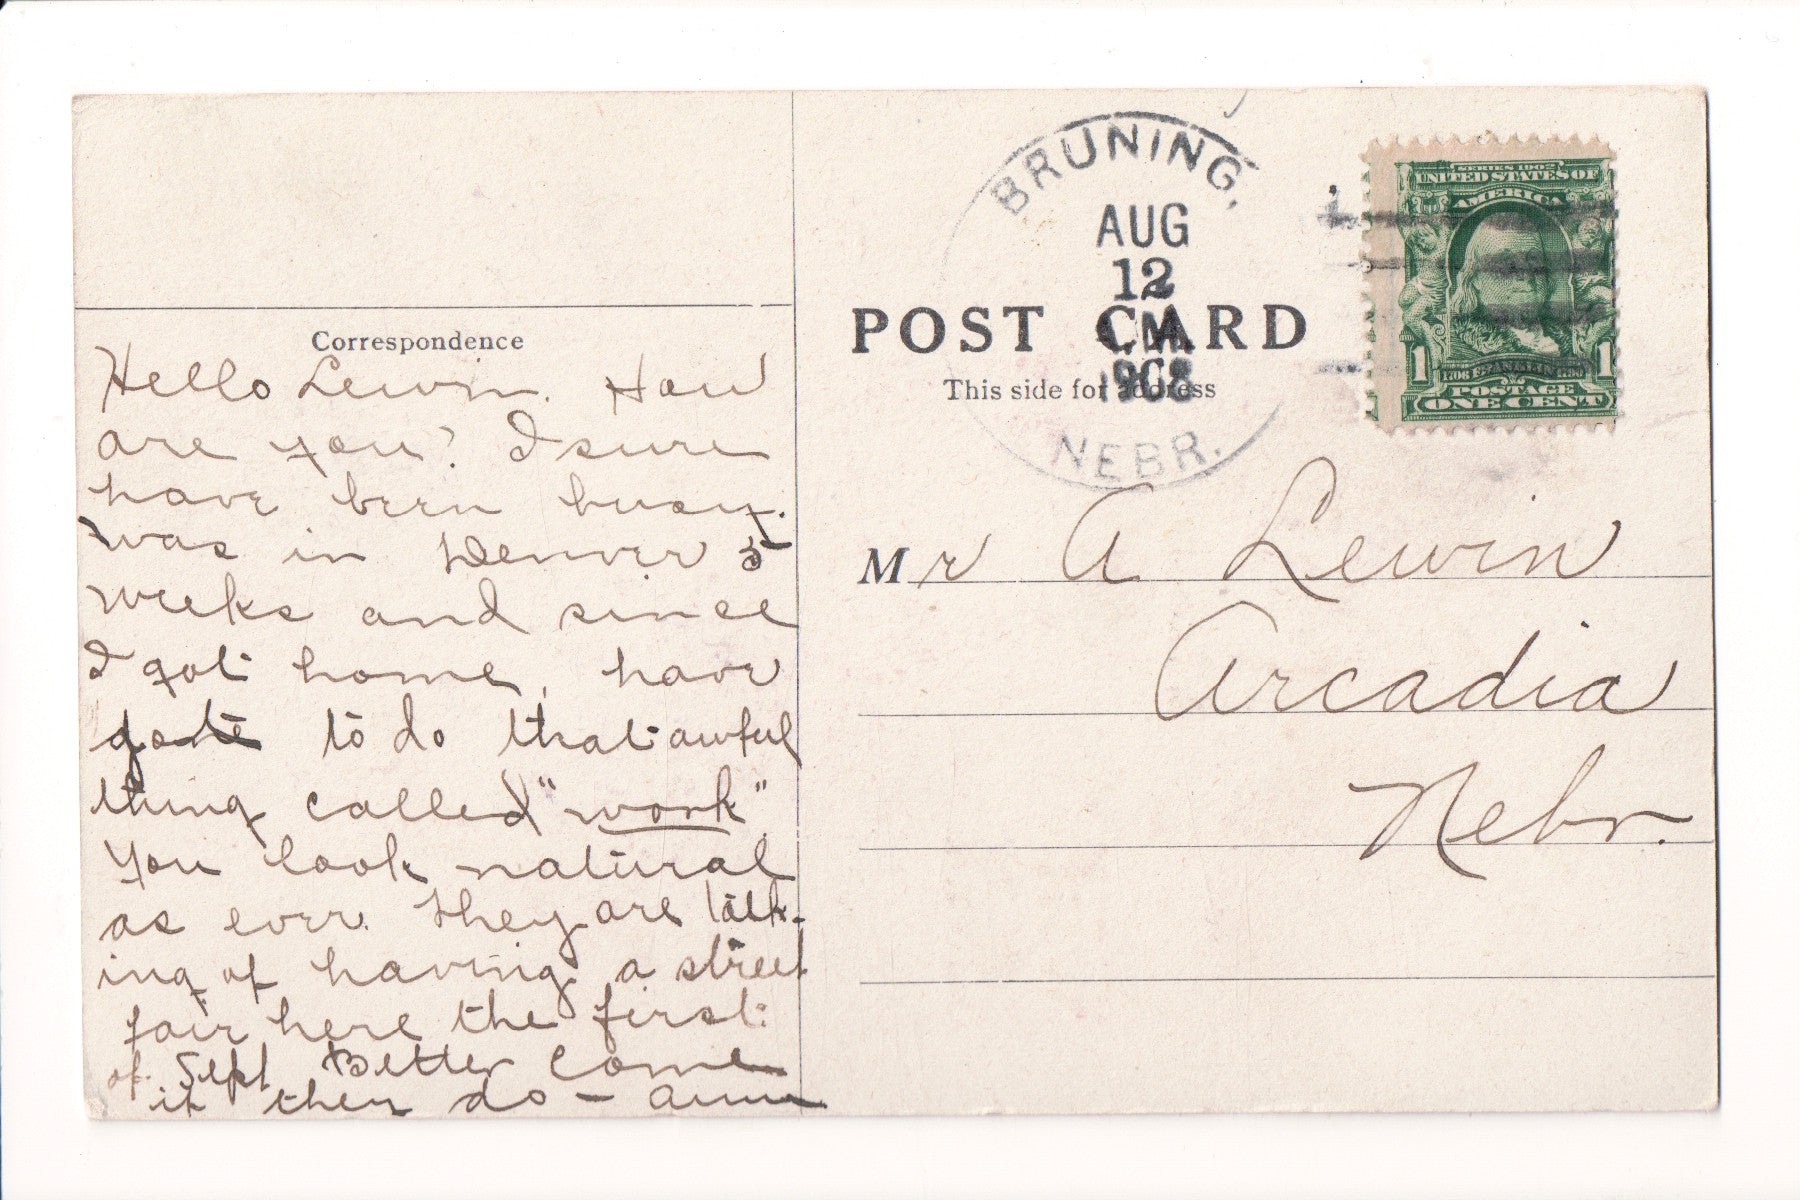 Correspondence
Hello Lewin. How
are you? I sure
have been busy.
Was in Denver 5
weeks and since
I got home, have
gotte to do that awful
thing called "work"
You look natural
as ever. They are talk-
ing of having a street
fair here the first
of Sept Better come
if they do - Ann
BRUNING,
AUG
12
1908
NEBR.
POST CARD
This side for address
SERIES 1902
UNITED STATES OF
AMERICA
1 1
1706 FRANKLIN 1790
POSTAGE
ONE CENT
Mr A Lewin
Arcadia
Nebr.